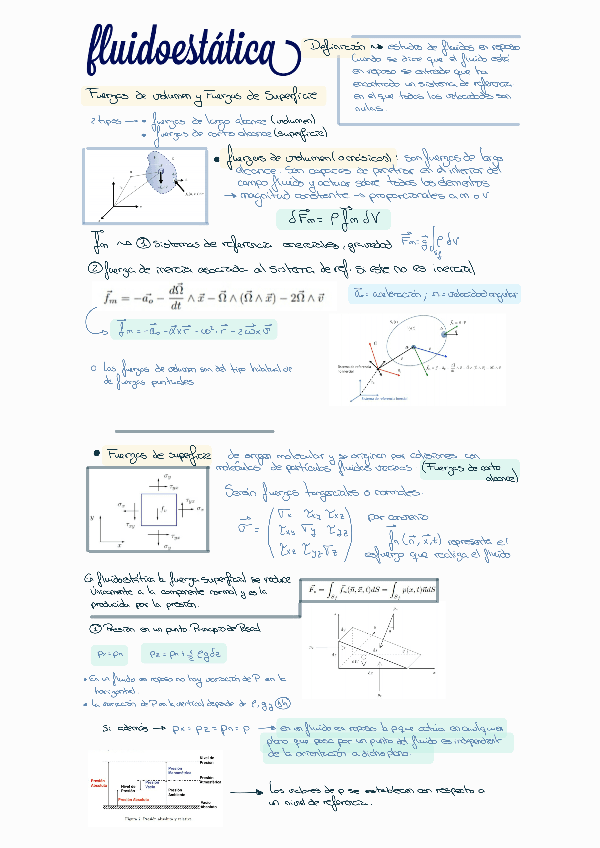 fluidoestática
Definición → estudio de fluidos en reposo
Cuando se dice que el fluido está
en reposo se entiende que ha
encontrado un sistema de referencia
en el que todas las velocidades son
nulas.
Fuerzas de volumen y Fuerzas de Superficie
2 tipos → • fuerzas de largo alcance (volumen)
• fuerzas de corto alcance (superficie)
• fuerzas de volumen (o másicas): son fuerzas de largo
alcance. Son capaces de penetrar en el interior del
campo fluido y actuar sobre todos los elementos
→ magnitud constante → proporcionales a m o V
δF⃗m = ρ f⃗m dV
f⃗m ⇝ ① Sistemas de referencia inerciales, gravedad
② fuerza de inercia asociada al sistema de ref. si este no es inercial
f⃗m = −a⃗o − dΩ⃗/dt ∧ x⃗ − Ω⃗ ∧ (Ω⃗ ∧ x⃗) − 2Ω⃗ ∧ v⃗
f⃗m = −a⃗o − α⃗ x r⃗ − ω². r⃗ − 2 ω⃗ x v⃗
○ Las fuerzas de volumen son del tipo habitual de
de fuerzas puntuales
Sistema de referencia inercial
• Fuerzas de superficie de origen molecular y se originan por colisiones con
moléculas de partículas fluidas vecinas (Fuerzas de corto
alcance)
Serán fuerzas tangenciales o normales.
σy
τyx
τxy
σx
fv
y
x
por convenio
f⃗n (n⃗, x⃗, t) representa el
esfuerzo que realiza el fluido
fluidoestática la fuerza superficial se reduce
únicamente a la componente normal y es la
producida por la presión.
F⃗s = ∫Sf f⃗n(n⃗, x⃗, t)dS = ∫Sf p(x, t)n⃗dS
① Presión en un punto Principio de Pascal
px = pn
pz = pn + ½ ρg δz
• En un fluido en reposo no hay variación de P en la
horizontal
• La variación de P en la vertical depende de ρ, g y Δh
Si además → px = pz = pn = p → en un fluido en reposo la p que actúa en cualquier
plano que pasa por un punto del fluido es independiente
de la orientación a dicho plano.
Nivel de
Presión
Presión
Manométrica
Presión
Absoluta
Nivel de
Presión
Presión
Vacío
Presión
Atmosférica
Presión
Ambiente
Presión Absoluta
Vacío
Absoluto
→ Los valores de p se establecen con respecto a
un nivel de referencia.